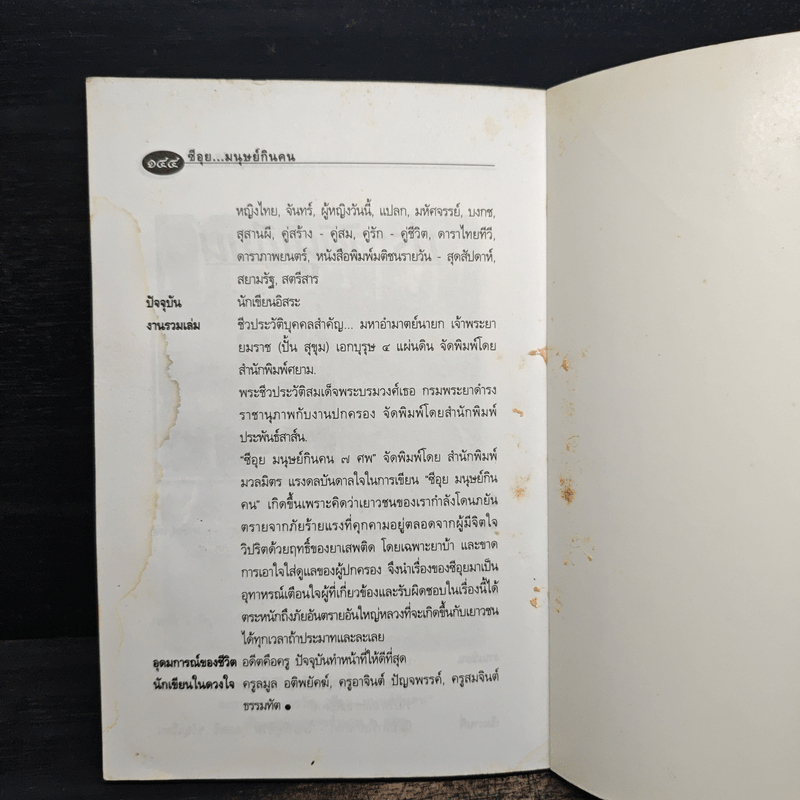 ๑๔๔ ซีอุย...มนุษย์กินคน
หญิงไทย, จันทร์, ผู้หญิงวันนี้, แปลก, มหัศจรรย์, บงกช,
สุสานผี, คู่สร้าง - คู่สม, คู่รัก - คู่ชีวิต, ดาราไทยทีวี,
ดาราภาพยนตร์, หนังสือพิมพ์มติชนรายวัน - สุดสัปดาห์,
สยามรัฐ, สตรีสาร
ปัจจุบัน นักเขียนอิสระ
งานรวมเล่ม ชีวประวัติบุคคลสำคัญ... มหาอำมาตย์นายก เจ้าพระยา
ยมราช (ปั้น สุขุม) เอกบุรุษ ๔ แผ่นดิน จัดพิมพ์โดย
สำนักพิมพ์ศยาม.
พระชีวประวัติสมเด็จพระบรมวงศ์เธอ กรมพระยาดำรง
ราชานุภาพกับงานปกครอง จัดพิมพ์โดยสำนักพิมพ์
ประพันธ์สาส์น.
"ซีอุย มนุษย์กินคน ๗ ศพ" จัดพิมพ์โดย สำนักพิมพ์
มวลมิตร แรงดลบันดาลใจในการเขียน "ซีอุย มนุษย์กิน
คน" เกิดขึ้นเพราะคิดว่าเยาวชนของเรากำลังโดนภยัน
ตรายจากภัยร้ายแรงที่คุกคามอยู่ตลอดจากผู้มีจิตใจ
วิปริตด้วยฤทธิ์ของยาเสพติด โดยเฉพาะยาบ้า และขาด
การเอาใจใส่ดูแลของผู้ปกครอง จึงนำเรื่องของซีอุยมาเป็น
อุทาหรณ์เตือนใจผู้ที่เกี่ยวข้องและรับผิดชอบในเรื่องนี้ได้
ตระหนักถึงภัยอันตรายอันใหญ่หลวงที่จะเกิดขึ้นกับเยาวชน
ได้ทุกเวลาถ้าประมาทและละเลย
อุดมการณ์ของชีวิต อดีตคือครู ปัจจุบันทำหน้าที่ให้ดีที่สุด
นักเขียนในดวงใจ ครูลมูล อติพยัคฆ์, ครูอาจินต์ ปัญจพรรค์, ครูสมจินต์
ธรรมทัต ●